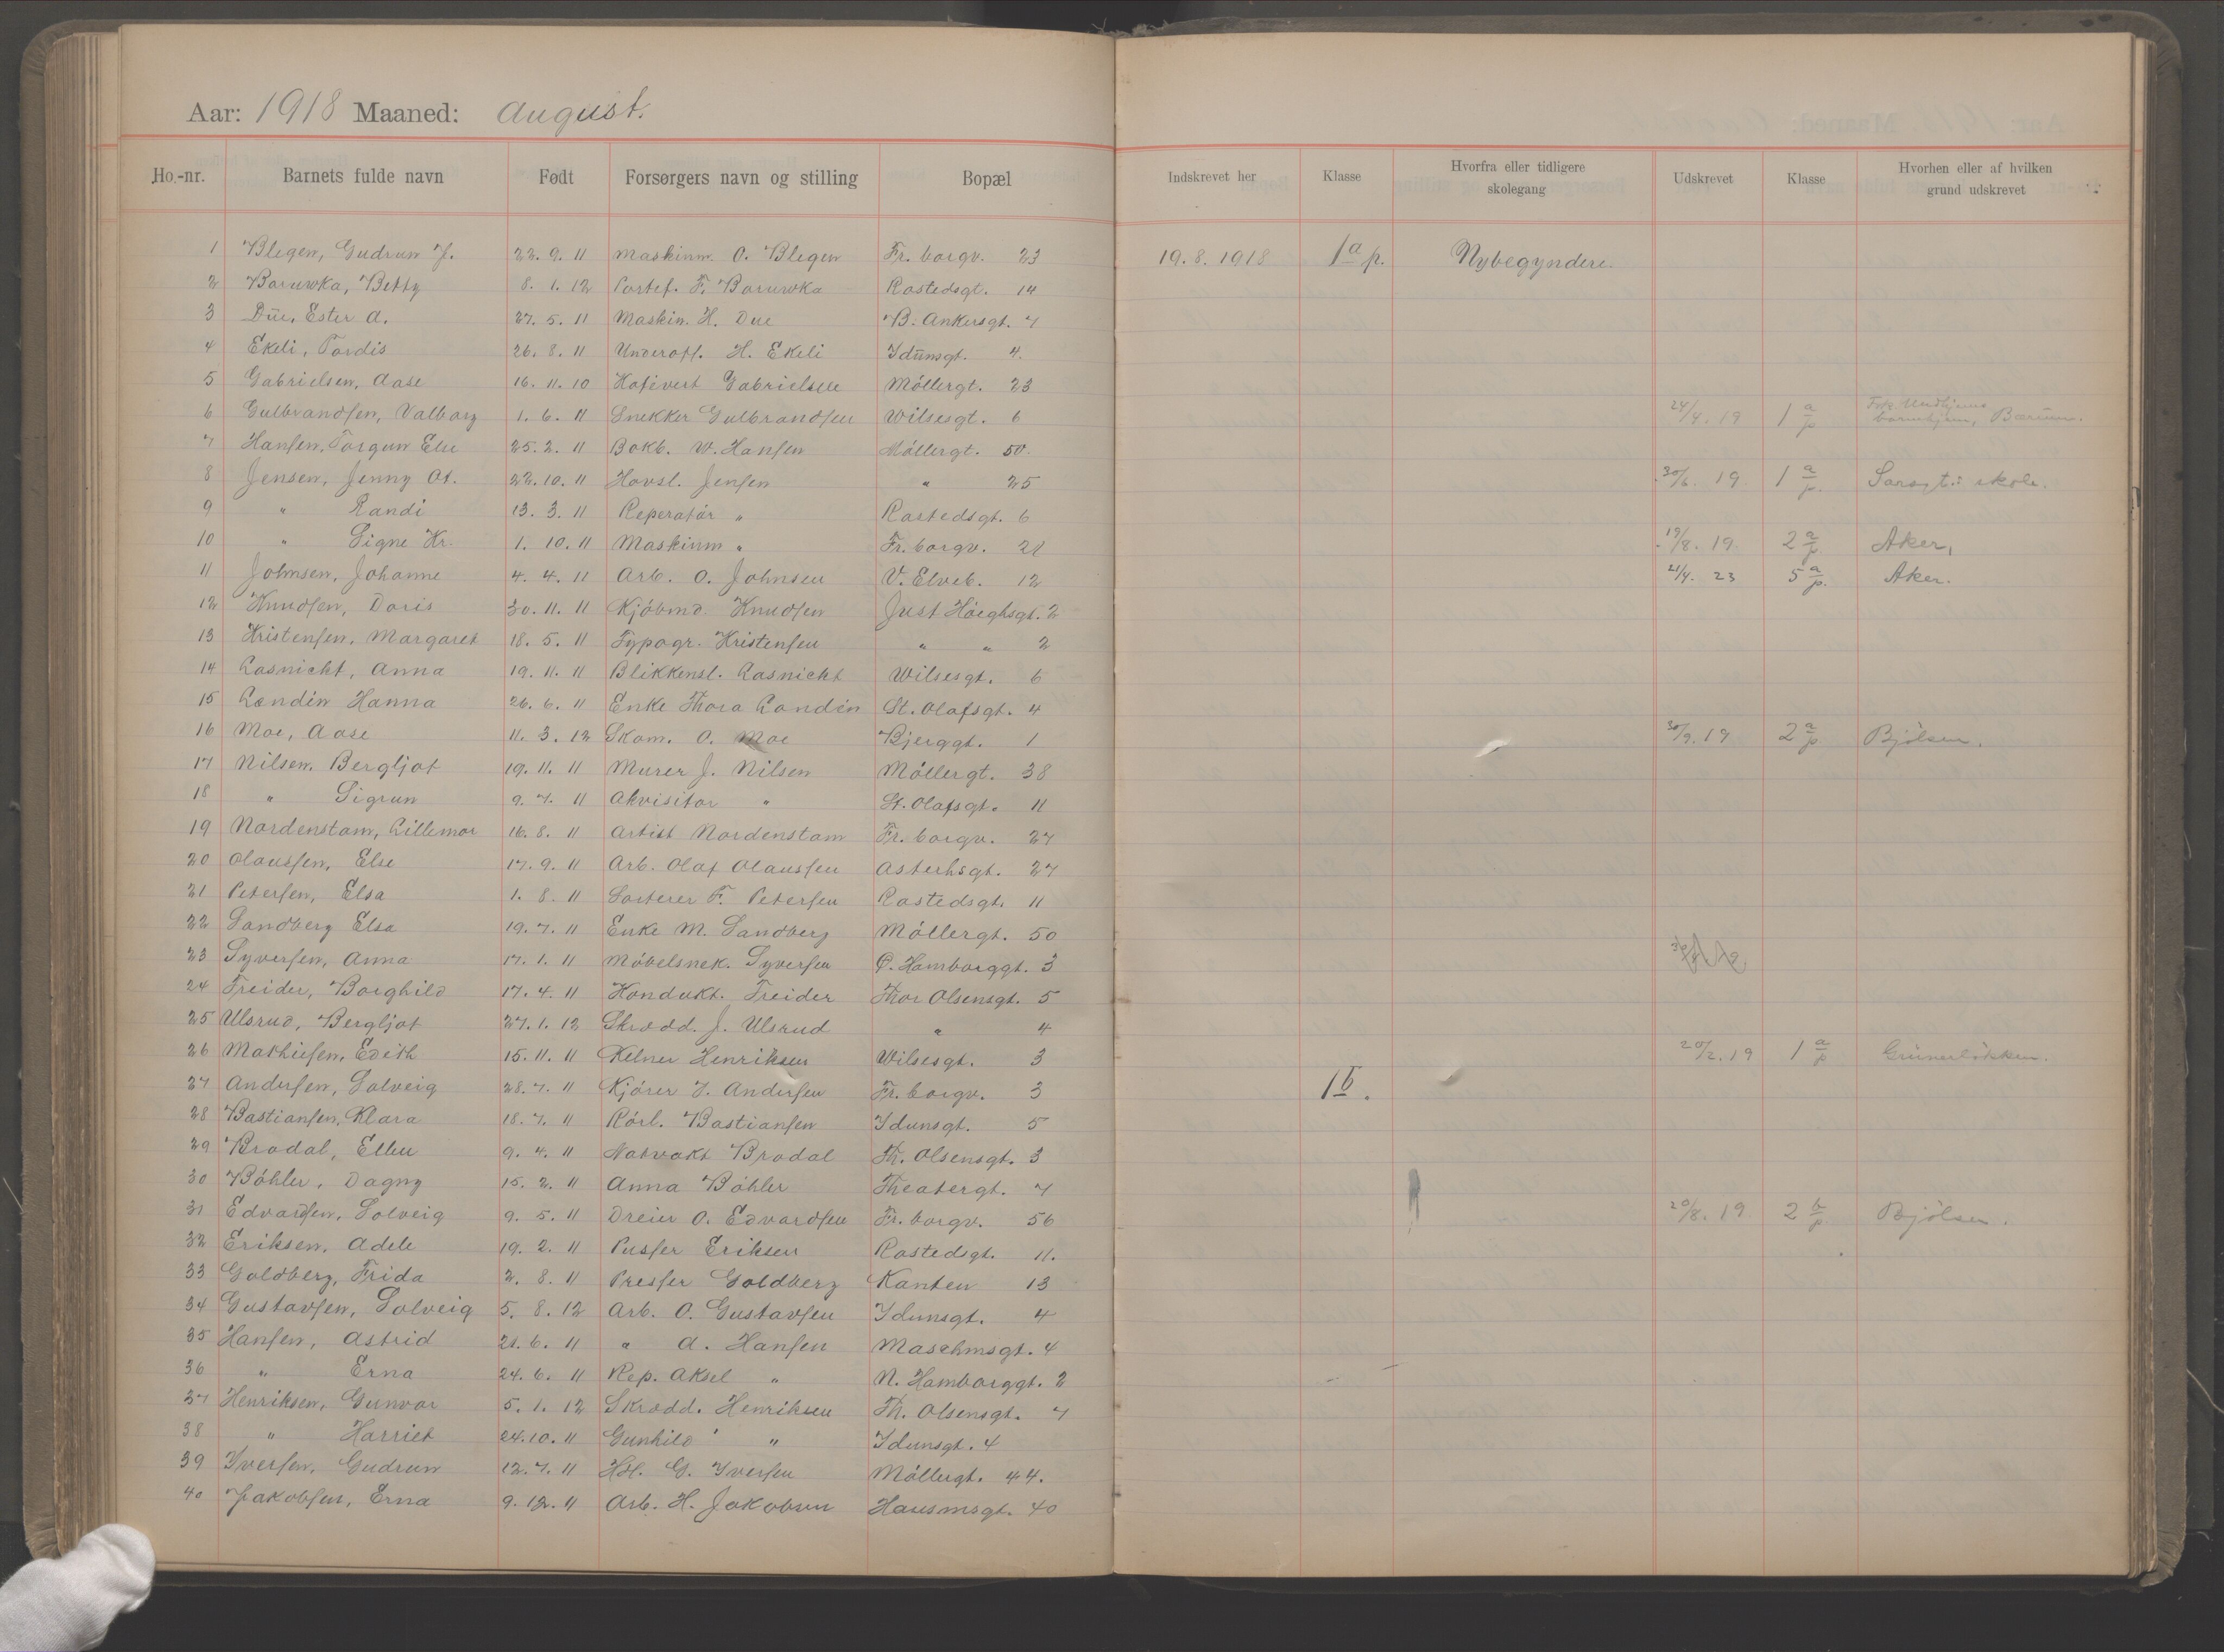 Aar: 1918 Maaned: August.
Ho.-nr. Barnets fulde navn Født Forsørgers navn og stilling Bopæl Indskrevet her Klasse Hvorfra eller tidligere skolegang Udskrevet Klasse Hvorhen eller af hvilken grund udskrevet
1 Blegen, Gudrun J. 22. 9. 11 Maskinm. O. Blegen Fr. borgv. 23 19. 8. 1918 1 a p. Nybegyndere.
2 Baruwka, Betty 8. 1. 12 Portef. F. Baruwka Rostedsgt. 14
3 Düe, Ester A. 27. 5. 11 Maskin. H. Due B. Ankersgt. 7
4 Ekeli, Tordis 26. 8. 11 Underoff. H. Ekeli Idünsgt. 4.
5 Gabrielsen, Aase 16. 11. 10 Gabrielsen Möllergt. 23
6 Gulbrandsen, Valborg 1. 6. 11 Snekker Gulbrandsen Wilsesgt. 6 24/4. 19 1 a p barnehjem, Bærum.
7 Hansen, Torgun Else 25. 2. 11 Bokb. W. Hansen Möllergt. 50
8 Jensen, Jenny 22. 10. 11 Hovsl. Jensen " 25 30/6. 19 1 a p. Sarsgt.s skole.
9 " Randi 13. 3. 11 Reperatör " Rostedsgt. 6
10 " Signe Kr. 1. 10. 11 Maskinm " Fr. borgv. 21 19/8. 19. 2 a p Aker,
11 Johnsen, Johanne 4. 4. 11 Arb. O. Johnsen V. Elveb. 12 21/4. 23 5 a p. Aker.
12 Knudsen, Doris 30. 11. 11 Kjöbmd. Knudsen Just Höeghsgt. 2
13 Kristensen, Margaret 18. 5. 11 Typogr. Kristensen " " 2
14 Lasnicht, Anna 19. 11. 11 Blikkensl. Lasnicht Wilsesgt. 6
15 Landin Hanna 26. 6. 11 Enke Thora Landin St. Olafsgt. 4
16 Moe, Aase 11. 3. 12 Skom. O. Moe Bjerggt. 1 30/9. 19 2 a p. Bjölsen.
17 Nilsen, Bergljot 19. 11. 11 Murer J. Nilsen Möllergt. 38
18 " Sigrun 9. 7. 11 Akvisitör " St. Olafsgt. 11
19 Nordenstam, Lillemor 16. 8. 11 Artist Nordenstam Fr. borgv. 27
20 Olaussen, Else 17. 9. 11 Arb. Olaf Olaussen Asterhsgt. 27
21 Petersen, Elsa 1. 8. 11 Sorterer F. Petersen Rostedsgt. 11
22 Sandberg Elsa 19. 7. 11 Enke M. Sandberg Möllergt. 50
23 Syversen, Anna 17. 1. 11 Möbelsnek. Syversen C. Hamborggt. 3
24 Treider, Borghild 17. 4. 11 Kondukt. Treider Thor Olsensgt. 5
25 Ulsrud, Bergljot 27. 1. 12 Skrædd. J. Ulsrud " 4
26 Mathiesen, Edith 15. 11. 11 Kelner Henriksen Wilsesgt. 3 20/2. 19 1 a p Grünerlökken.
27 Andersen, Solveig 28. 7. 11 Kjörer J. Andersen Fr. borgv. 3 1 b.
28 Bastiansen, Klara 18. 7. 11 Rörl. Bastiansen Idunsgt. 5
29 Brodal, Ellen 9. 4. 11 Natvakt Brodal Th. Olsensgt. 3
30 Böhler, Dagny 15. 2. 11 Anna Böhler Theatergt. 7
31 Edvardsen, Solveig 9. 5. 11 Dreier O. Edvardsen Fr. borgv. 56 20/8. 19 2 b p Bjölsen.
32 Eriksen, Adele 19. 2. 11 Pusser Eriksen Rostedsgt. 11.
33 Goldberg, Frida 2. 8. 11 Presser Goldberg Kanten 13
34 Gustavsen, Solveig 5. 8. 12 Arb. O. Gustavsen Idunsgt. 4
35 Hansen, Astrid 21. 6. 11 " A. Hansen Maschmsgt. 4
36 " Erna 24. 6. 11 Rep. Aksel " N. Hamborggt. 2
37 Henriksen, Gunvor 5. 1. 12 Skrædd. Henriksen Th. Olsensgt. 7
38 " Harriet 24. 10. 11 Gunhild " Idunsgt. 4
39 Iversen, Gudrun 12. 7. 11 G. Iversen Möllergt. 44.
40 Jakobsen, Erna 9. 12. 11 Arb. H. Jakobsen Hausmsgt. 40